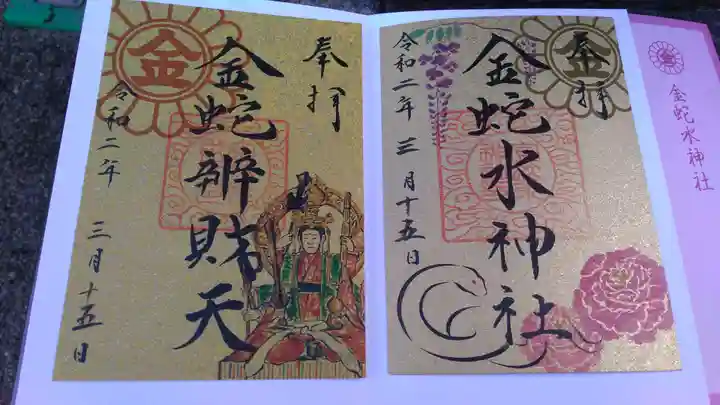 奉拝
金蛇水神社
令和二年 三月十五日
金
奉拝
金蛇辨財天
令和二年 三月十五日
金
金蛇水神社